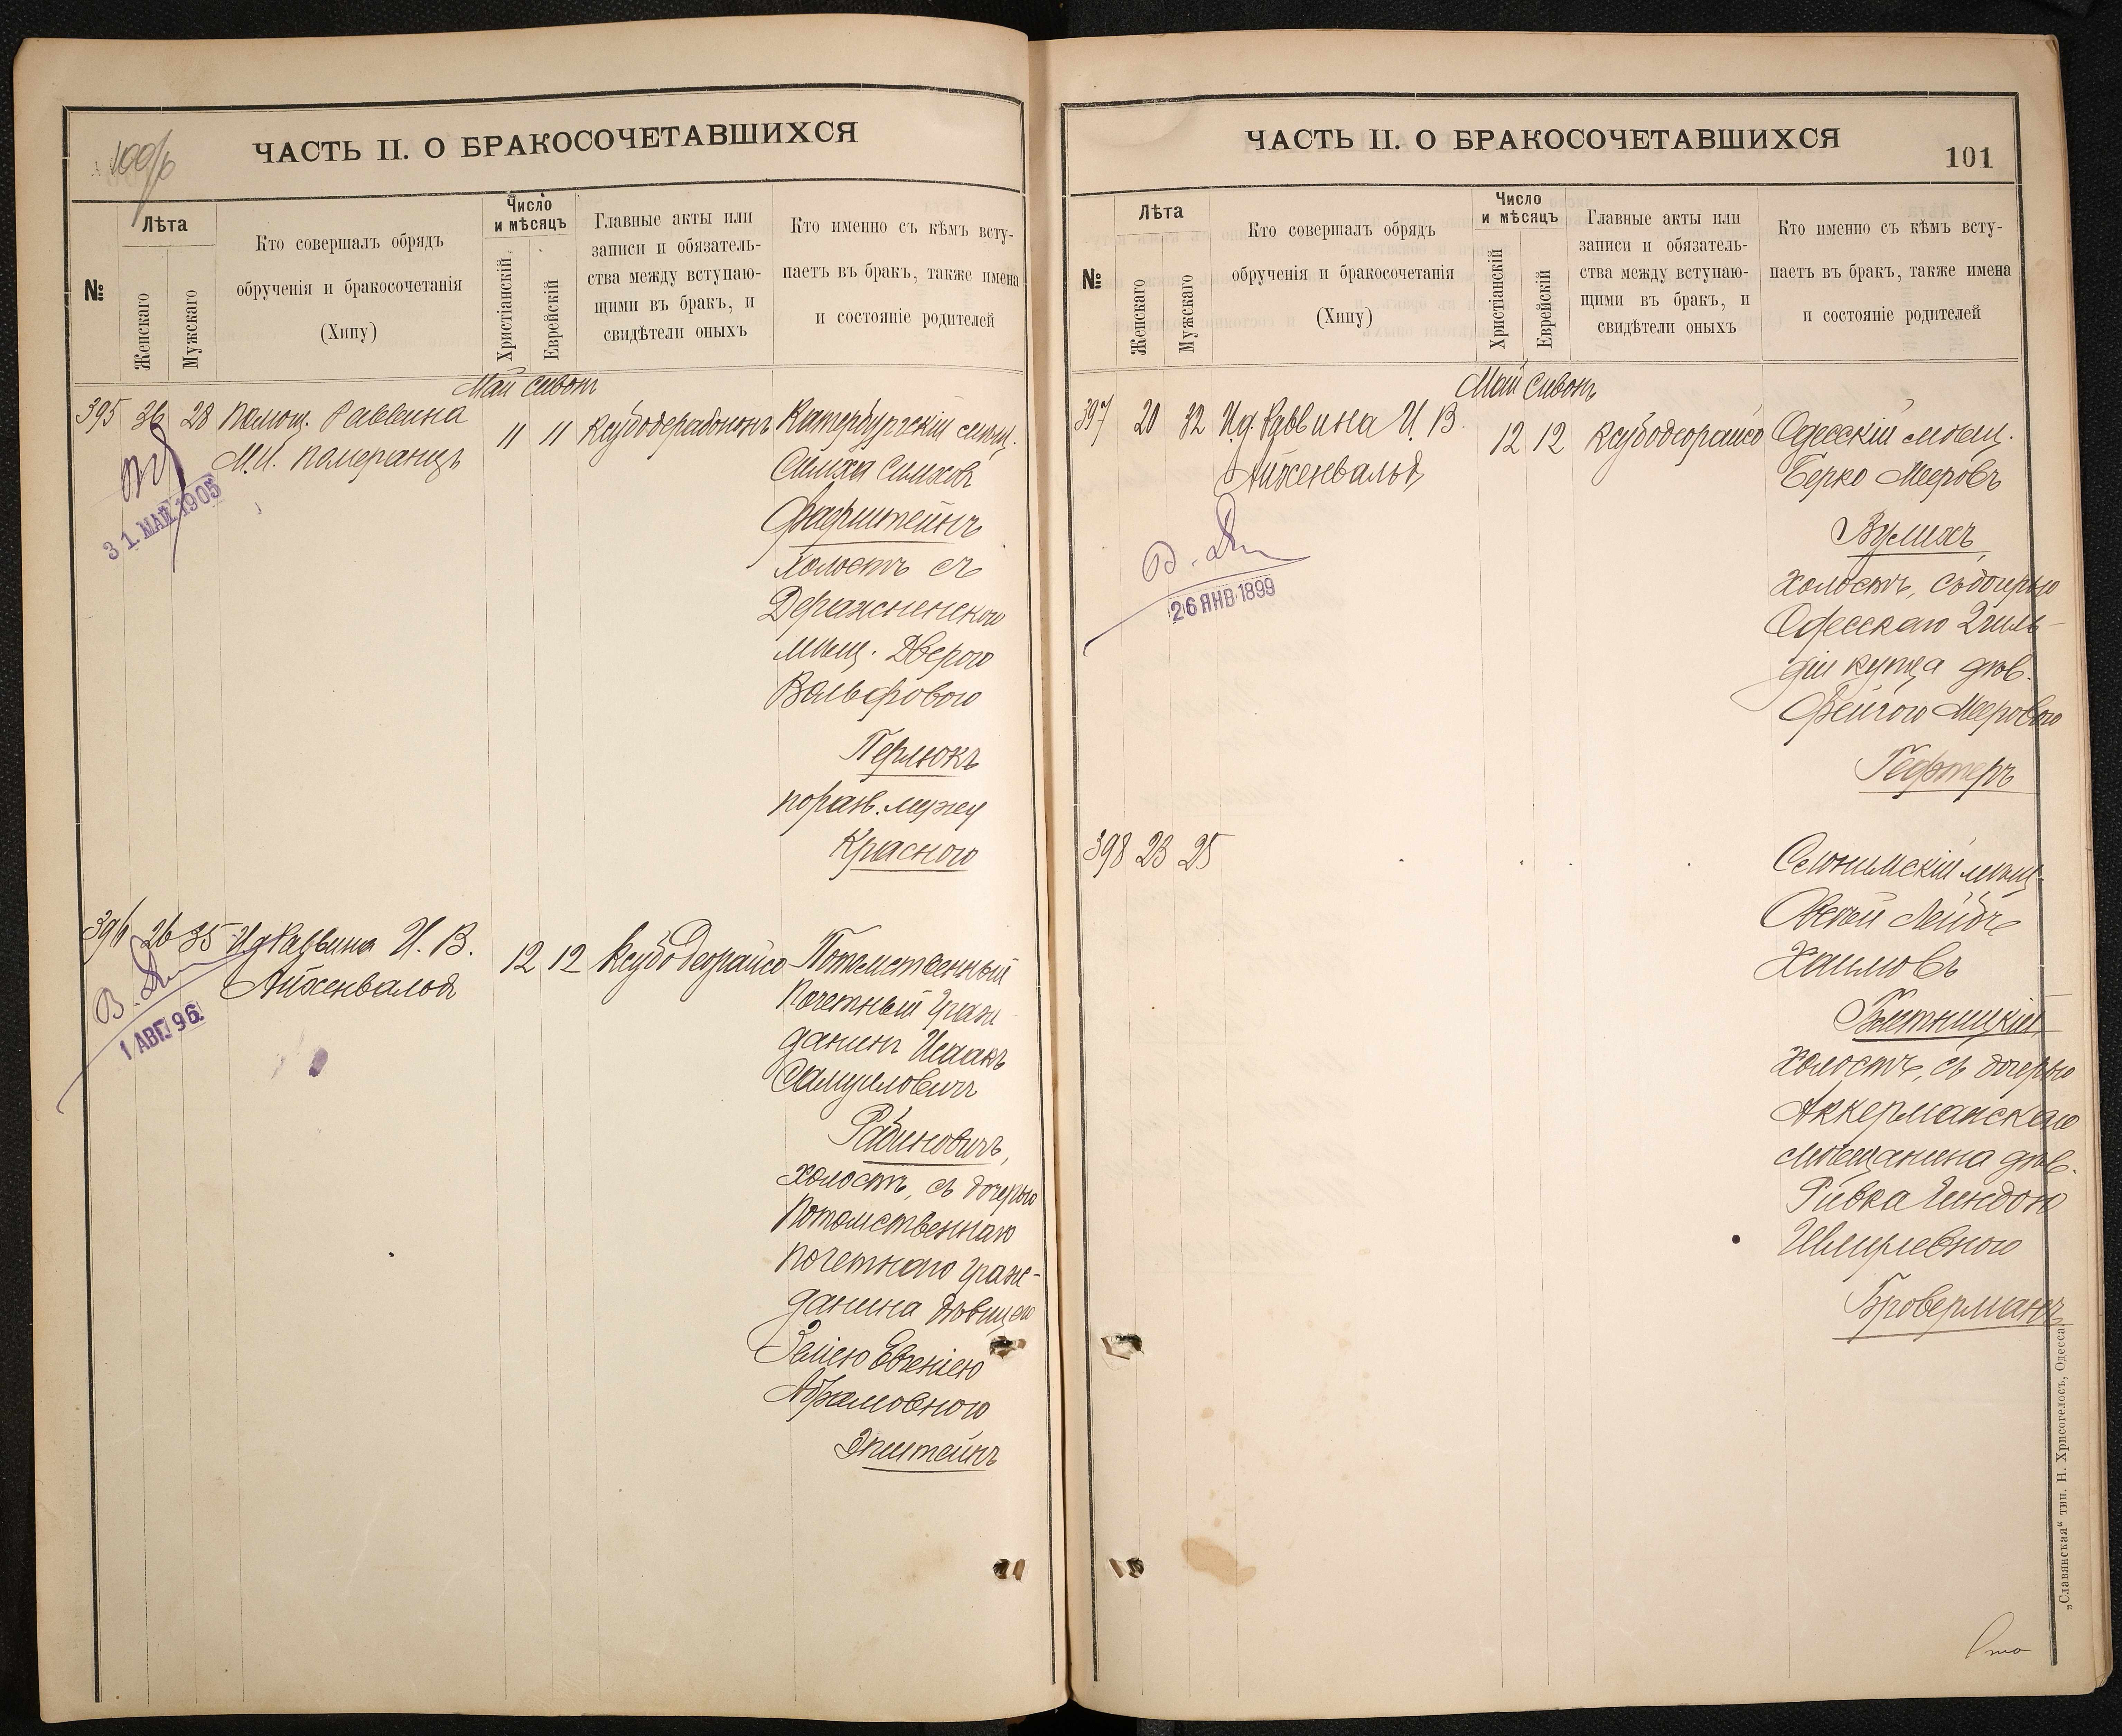 100/б
ЧАСТЬ II. О БРАКОСОЧЕТАВШИХСЯ
№
Лѣта
Женскаго
Мужскаго
Кто совершалъ обрядъ
обрученія и бракосочетанія
(Хипу)
Число
и мѣсяцъ
Христіанскій
Еврейскій
Главные акты или
записи и обязатель-
ства между вступаю-
щими въ бракъ, и
свидѣтели оныхъ
Кто именно съ кѣмъ всту-
паетъ въ бракъ, также имена
и состояніе родителей
Май Сивонъ
395 36 28 Помощ. Раввина
М.И. Померанцъ
11 11
Катербургскій мѣщ.
Симха Симховъ
Фарштейнъ
холостъ съ
Деражненскою
мѣщ. Дверою
Вольфовою
Перлюкъ
по разв. мужу
Красною
31. МАЙ 1905
396 26 35 И д Раввина И. В.
Айхенвальд
12 12 Ксубо Деорайсо
Потомственный
Почетный Граж
данинъ Исаакъ
Самуиловичъ
Рабиновичъ,
холостъ, съ дочерью
Потомственнаго
почетнаго граж-
данина дѣвицею
Евгеніею
Абрамовною
Эпштейнъ
1 АВГ. 96.
ЧАСТЬ II. О БРАКОСОЧЕТАВШИХСЯ
101
№
Лѣта
Женскаго
Мужскаго
Кто совершалъ обрядъ
обрученія и бракосочетанія
(Хипу)
Число
и мѣсяцъ
Христіанскій
Еврейскій
Главные акты или
записи и обязатель-
ства между вступаю-
щими въ бракъ, и
свидѣтели оныхъ
Кто именно съ кѣмъ всту-
паетъ въ бракъ, также имена
и состояніе родителей
Май Сивонъ
397 20 32 И.д. Раввина И. В.
Айхенвальд
12 12 Ксубодеорайсо
Одесскій мѣщ.
Берко Мееровъ
Вулихъ,
холостъ, съ дочерью
Одесскаго 2 гиль-
діи купца дѣв.
Фейгою Мееровою
Гефтеръ
26 ЯНВ 1899
398 23 25
Слонимскій мѣщ.
Овсей Лейбъ
Хаимовъ
холостъ, съ дочерью
Аккерманскаго
мѣщанина дѣв.
Ривка Гиндою
Шмулевною
Броверманъ
„Славянская“ тип. Н. Хрисогелосъ, Одесса.